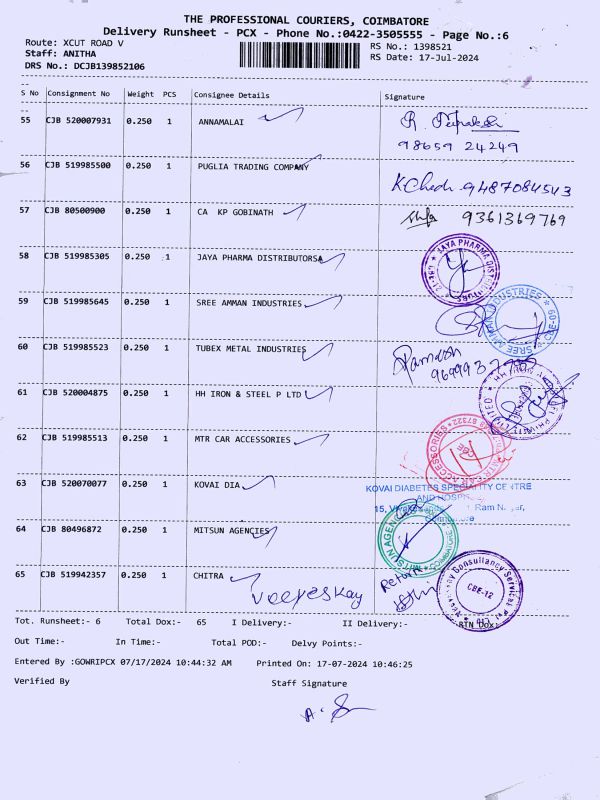 THE PROFESSIONAL COURIERS, COIMBATORE
Delivery Runsheet - PCX - Phone No.:0422-3505555 - Page No.:6
Route: XCUT ROAD V RS No.: 1398521
Staff: ANITHA RS Date: 17-Jul-2024
DRS No.: DCJB139852106
S No Consignment No Weight PCS Consignee Details Signature
55 CJB 520007931 0.250 1 ANNAMALAI R.
98659 24249
56 CJB 519985500 0.250 1 PUGLIA TRADING COMPANY
9487084543
57 CJB 80500900 0.250 1 CA KP GOBINATH 9361369769
58 CJB 519985305 0.250 1 JAYA PHARMA DISTRIBUTORS
JAYA PHARMA DIST
59 CJB 519985645 0.250 1 SREE AMMAN INDUSTRIES
SREE AMMAN INDUSTRIES
60 CJB 519985523 0.250 1 TUBEX METAL INDUSTRIES Ramesh
61 CJB 520004875 0.250 1 HH IRON & STEEL P LTD
62 CJB 519985513 0.250 1 MTR CAR ACCESSORIES
63 CJB 520070077 0.250 1 KOVAI DIA
KOVAI DIABETES SPECIALITY CENTRE
AND
15, Ram
Coimbatore
64 CJB 80496872 0.250 1 MITSUN AGENCIES
MITSUN AGEN
65 CJB 519942357 0.250 1 CHITRA Return
Veeyeskay
Consultancy Services
CBE-12
Tot. Runsheet:- 6 Total Dox:- 65 I Delivery:- II Delivery:- RTN Dox:
Out Time:- In Time:- Total POD:- Delvy Points:-
Entered By :GOWRIPCX 07/17/2024 10:44:32 AM Printed On: 17-07-2024 10:46:25
Verified By Staff Signature